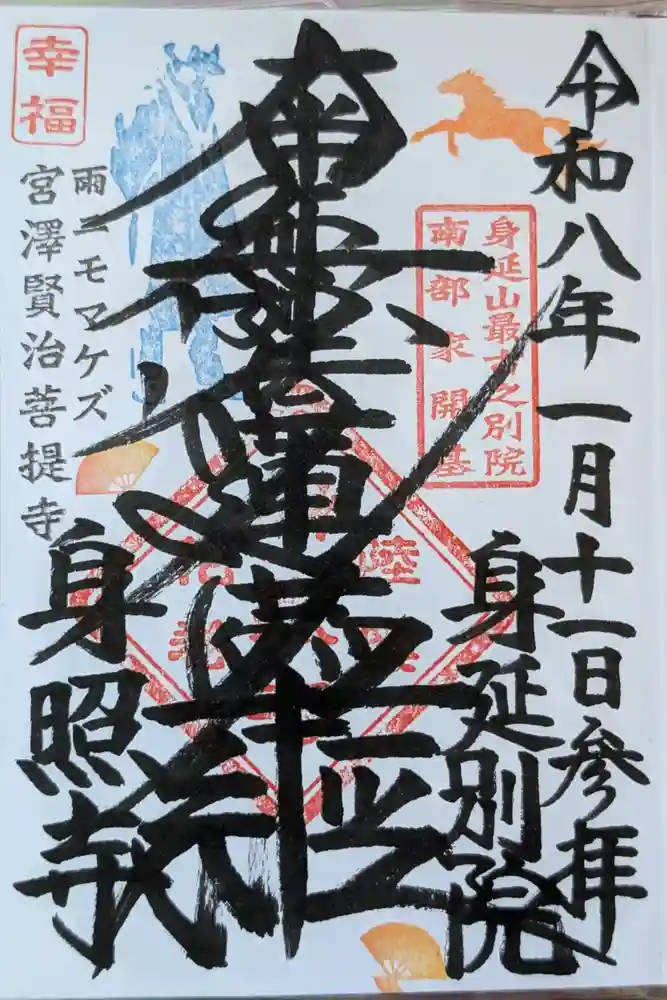 令和八年一月十一日参拝
身延山最古之別院
南部家開基
身延別院
南無妙法蓮華経
雨ニモマケズ
宮澤賢治菩提寺
身照寺
幸福